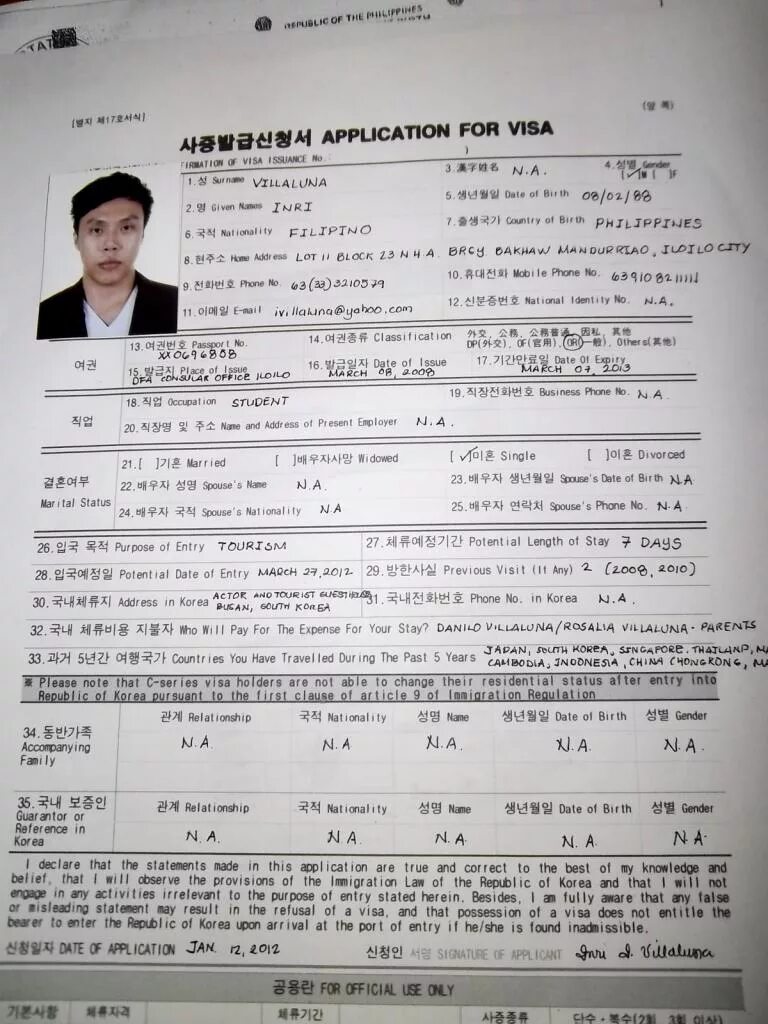 REPUBLIC OF THE PHILIPPINES
[별지 제17호서식]
(앞 쪽)
사증발급신청서 APPLICATION FOR VISA
FIRMATION OF VISA ISSUANCE No. )
1.성 Surname VILLALUNA
3.漢字姓名 N.A.
4.성별 Gender [✓]M [ ]F
2.명 Given Names INRI
5.생년월일 Date of Birth 08/02/88
6.국적 Nationality FILIPINO
7.출생국가 Country of Birth PHILIPPINES
8.현주소 Home Address LOT 11 BLOCK 23 N.H.A. BRGY. BAKHAW MANDURRIAO, ILOILO CITY
9.전화번호 Phone No. 63(33)3210579
10.휴대전화 Mobile Phone No. 639108211111
11.이메일 E-mail ivillaluna@yahoo.com
12.신분증번호 National Identity No. N.A.
여권
13.여권번호 Passport No. XX0696808
14.여권종류 Classification 外交, 公務, 公務普通, 因私, 其他
DP(外交), OF(官用), OR(一般), Others(其他)
15.발급지 Place of Issue DFA CONSULAR OFFICE ILOILO
16.발급일자 Date of Issue MARCH 08, 2008
17.기간만료일 Date Of Expiry MARCH 07, 2013
직업
18.직업 Occupation STUDENT
19.직장전화번호 Business Phone No. N.A.
20.직장명 및 주소 Name and Address of Present Employer N.A.
결혼여부
Marital Status
21.[ ]기혼 Married [ ]배우자사망 Widowed [✓]미혼 Single [ ]이혼 Divorced
22.배우자 성명 Spouse's Name N.A.
23.배우자 생년월일 Spouse's Date of Birth N.A
24.배우자 국적 Spouse's Nationality N.A
25.배우자 연락처 Spouse's Phone No. N.A.
26.입국 목적 Purpose of Entry TOURISM
27.체류예정기간 Potential Length of Stay 7 DAYS
28.입국예정일 Potential Date of Entry MARCH 27, 2012
29.방한사실 Previous Visit (If Any) 2 (2008, 2010)
30.국내체류지 Address in Korea ACTOR AND TOURIST GUESTHOUSE
BUSAN, SOUTH KOREA
31.국내전화번호 Phone No. in Korea N.A.
32.국내 체류비용 지불자 Who Will Pay For The Expense For Your Stay? DANILO VILLALUNA/ROSALIA VILLALUNA - PARENTS
33.과거 5년간 여행국가 Countries You Have Travelled During The Past 5 Years JAPAN, SOUTH KOREA, SINGAPORE, THAILAND, MA
CAMBODIA, INDONESIA, CHINA CHONGKONG, MA
※ Please note that C-series visa holders are not able to change their residential status after entry into
Republic of Korea pursuant to the first clause of article 9 of Immigration Regulation
34.동반가족
Accompanying
Family
관계 Relationship 국적 Nationality 성명 Name 생년월일 Date of Birth 성별 Gender
N.A. N.A N.A. N.A. N.A.
35.국내 보증인
Guarantor or
Reference in
Korea
관계 Relationship 국적 Nationality 성명 Name 생년월일 Date of Birth 성별 Gender
N.A. N.A. N.A. N.A. N.A.
I declare that the statements made in this application are true and correct to the best of my knowledge and
belief, that I will observe the provisions of the Immigration Law of the Republic of Korea and that I will not
engage in any activities irrelevant to the purpose of entry stated herein. Besides, I am fully aware that any false
or misleading statement may result in the refusal of a visa, and that possession of a visa does not entitle the
bearer to enter the Republic of Korea upon arrival at the port of entry if he/she is found inadmissible.
신청일자 DATE OF APPLICATION JAN. 12, 2012
신청인 서명 SIGNATURE OF APPLICANT Inri I. Villaluna
공용란 FOR OFFICIAL USE ONLY
기본사항 체류자격 체류기간 사증종류 단수·복수(2회, 3회 이상)